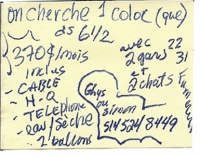 on cherche 1 coloc (que)
ds 6 1/2
370$/mois
inclus
- CABLE
- H-Q
- TELEPHONE
- eau/sèche
2 ballons
avec 22
2 gars 31
et
2 chats
Ghys
ou
simon
514 524 8449